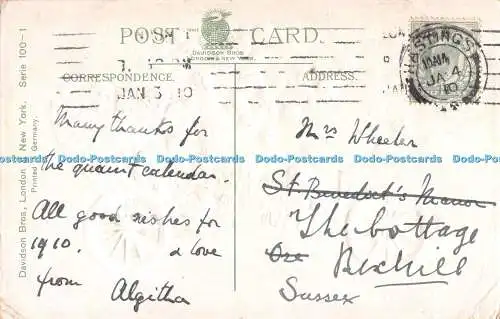 POST CARD.
Davidson Bros
LONDON & NEW YORK.
CORRESPONDENCE.
ADDRESS.
JAN 3 10
HASTINGS
JA 4
10
Davidson Bros., London & New York. Serie 100-1
Printed in Germany.
Many thanks for
the quaint calendar.
All good wishes for
1910. & love
from Algitha
Mrs Wheeler
St Benedict's Manor
The Cottage
Ore Bexhill
Sussex
www.Depot-Postcards.com